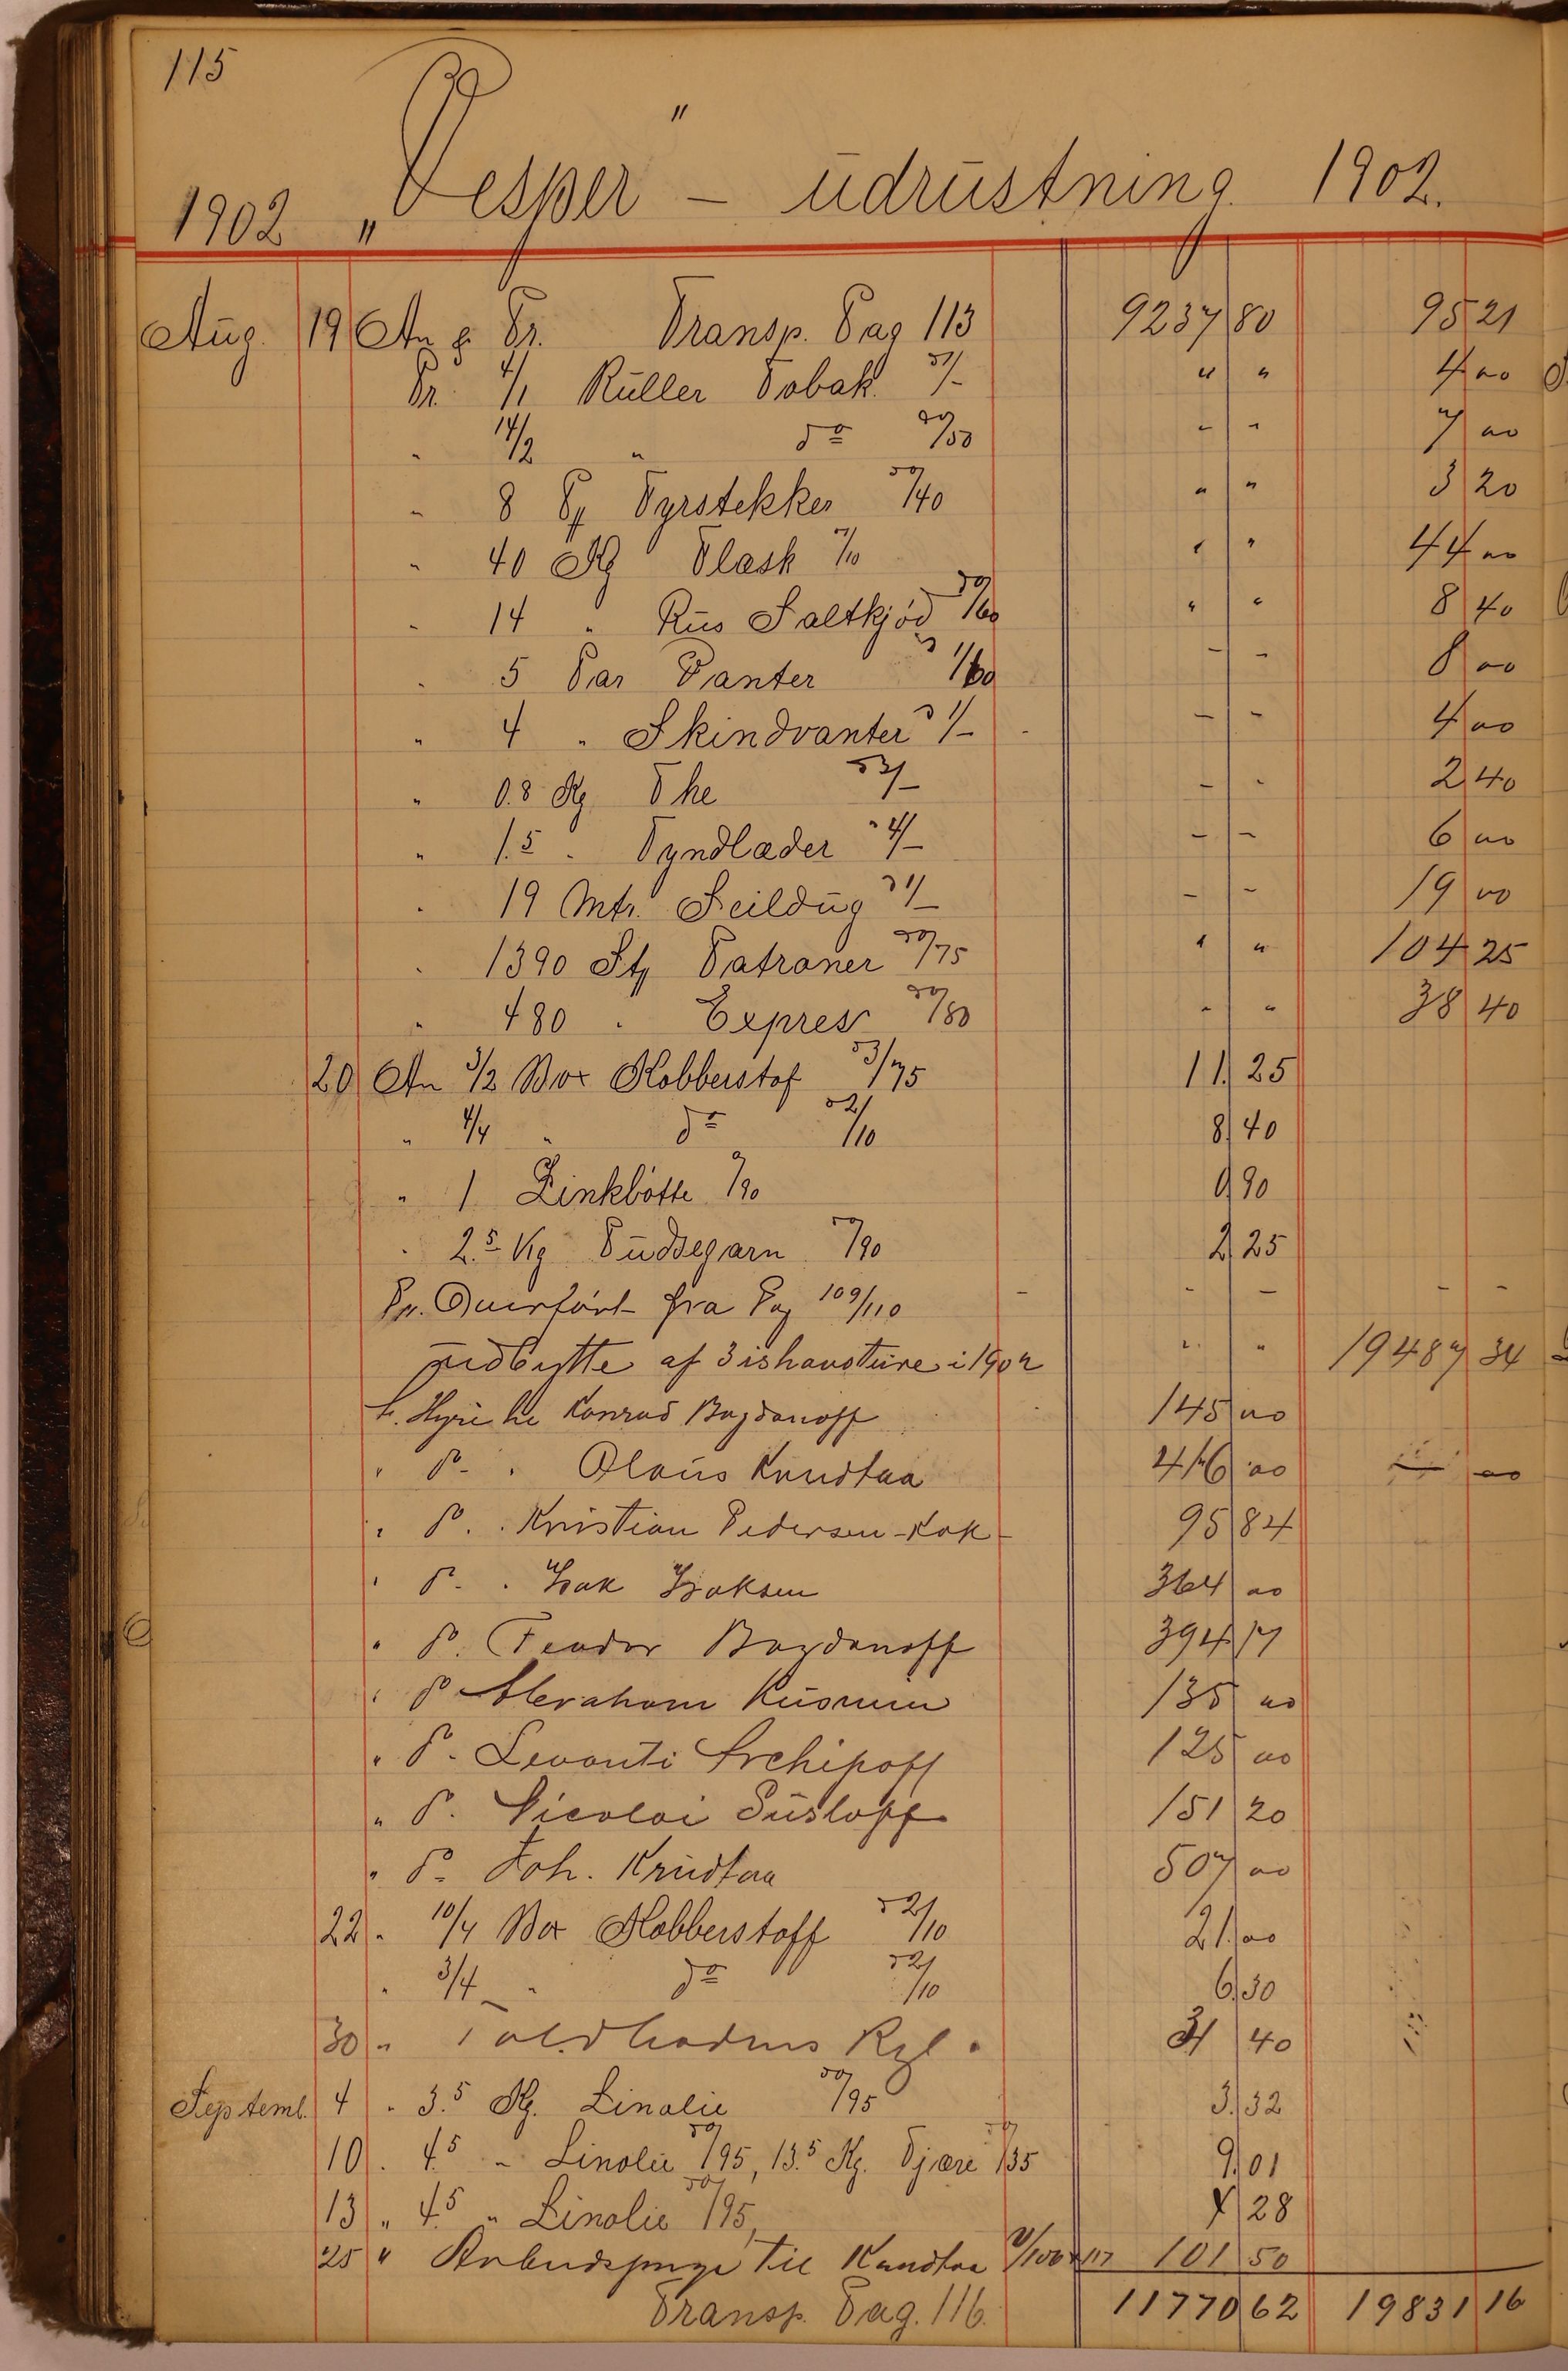 115
1902 "Vesper" – udrustning 1902.
Aug. 19 An & Pr. Transp. Pag 113 9237 80 95 21
Pr. 4/1 Ruller Tobak à 1/- " " 4 00
" 14/2 " do à 0/50 - - 7 00
" 8 Pk Fyrstekker à 0/40 " " 3 20
" 40 Kg Flæsk 1/10 " " 44 00
" 14 " Rus Saltkjød à 0/60 " " 8 40
" 5 Par Vanter à 1/60 - - 8 00
" 4 " Skindvanter à 1/- - - 4 00
" 0.8 Kg The à 3/- - - 2 40
" 1.5 " Tyndlæder à 4/- - - 6 00
" 19 Mtr. Seildug à 1/- - - 19 00
" 1390 Stk Patroner 75 " " 104 25
" 480 " Expres 80 " " 38 40
20 An 3/2 Box Kobberstof à 3/75 11 25
" 4/4 " do à 2/10 8 40
" 1 Zinkbøtte 0/90 0 90
" 2.5 Kg Pudsegarn 0/90 2 25
Pr. Overført fra Pag 109/110 - - - -
udbytte af 3 ishavsture i 1902 " " 19487 34
Konrad Bogdanoff 145 00
" Do " Olaus Kundtaa 416 00 — 00
" Do " Kristian Pedersen - Kok - 95 84
" Do " Isak Isaksen 364 00
" Do Feodor Bogdanoff 394 17
" Do Abraham Kusmin 135 00
" Do Levonti Archipoff 125 00
" Do Nicolai Susloff 151 20
" Do Joh. Krudtaa 507 00
22 " 10/4 Box Kobberstoff à 2/10 21 00
" 3/4 " do à 2/10 6 30
30 " Toldbodens Rgl. 31 40
Septemb. 4 " 3.5 Kg. Linolie 0/95 3 32
10 " 4.5 " Linolie 0/95, 13.5 Kg. Tjære 0/35 9 01
13 " 4.5 " Linolie 0/95, 4 28
25 " Arbeidspenge til Kundtaa 101 50
Transp. Pag. 116. 11770 62 19831 16